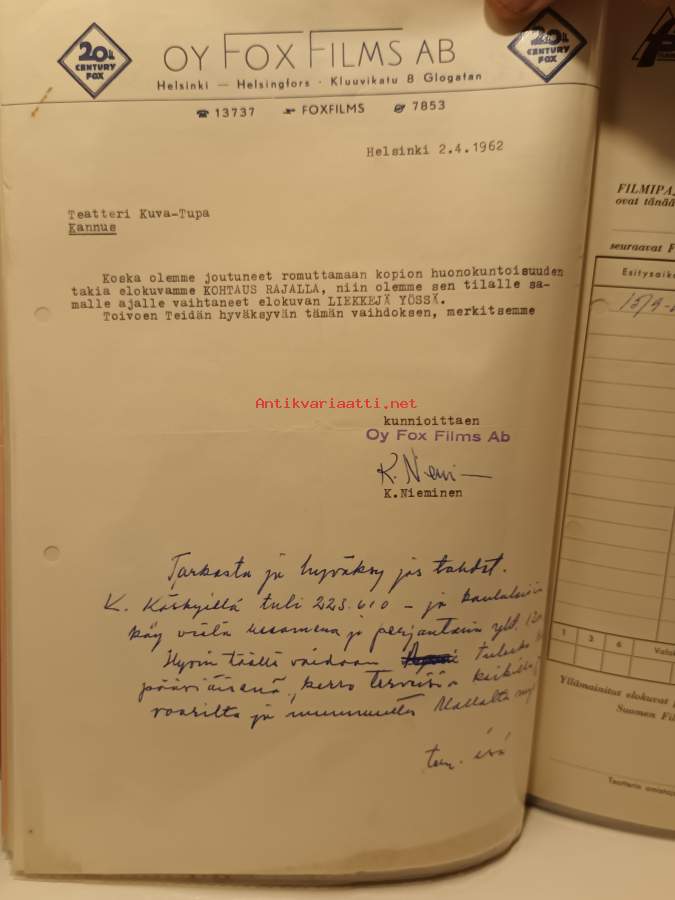 20th
CENTURY
FOX
OY FOX FILMS AB
20th
CENTURY
FOX
Helsinki — Helsingfors · Kluuvikatu 8 Glogatan
☎ 13737 FOXFILMS 7853
Helsinki 2.4.1962
Teatteri Kuva-Tupa
Kannus
Koska olemme joutuneet romuttamaan kopion huonokuntoisuuden
takia elokuvamme KOHTAUS RAJALLA, niin olemme sen tilalle sa-
malle ajalle vaihtaneet elokuvan LIEKKEJÄ YÖSSÄ.
Toivoen Teidän hyväksyvän tämän vaihdoksen, merkitsemme
Antikvariaatti.net
kunnioittaen
Oy Fox Films Ab
K.Nieminen
Tarkasta ja hyväksy jos tahdot.
K. tuli 223.610 – ja
käy vielä ja perjantain
Hyvin täällä voidaan
kerro terveisiä
ja
isä
FILMIPA
ovat tänää
seuraavat F
Esitysaika
1 3 6 Valo
Yllämainitut elokuvat
Suomen Fil
Teatterin omistaja